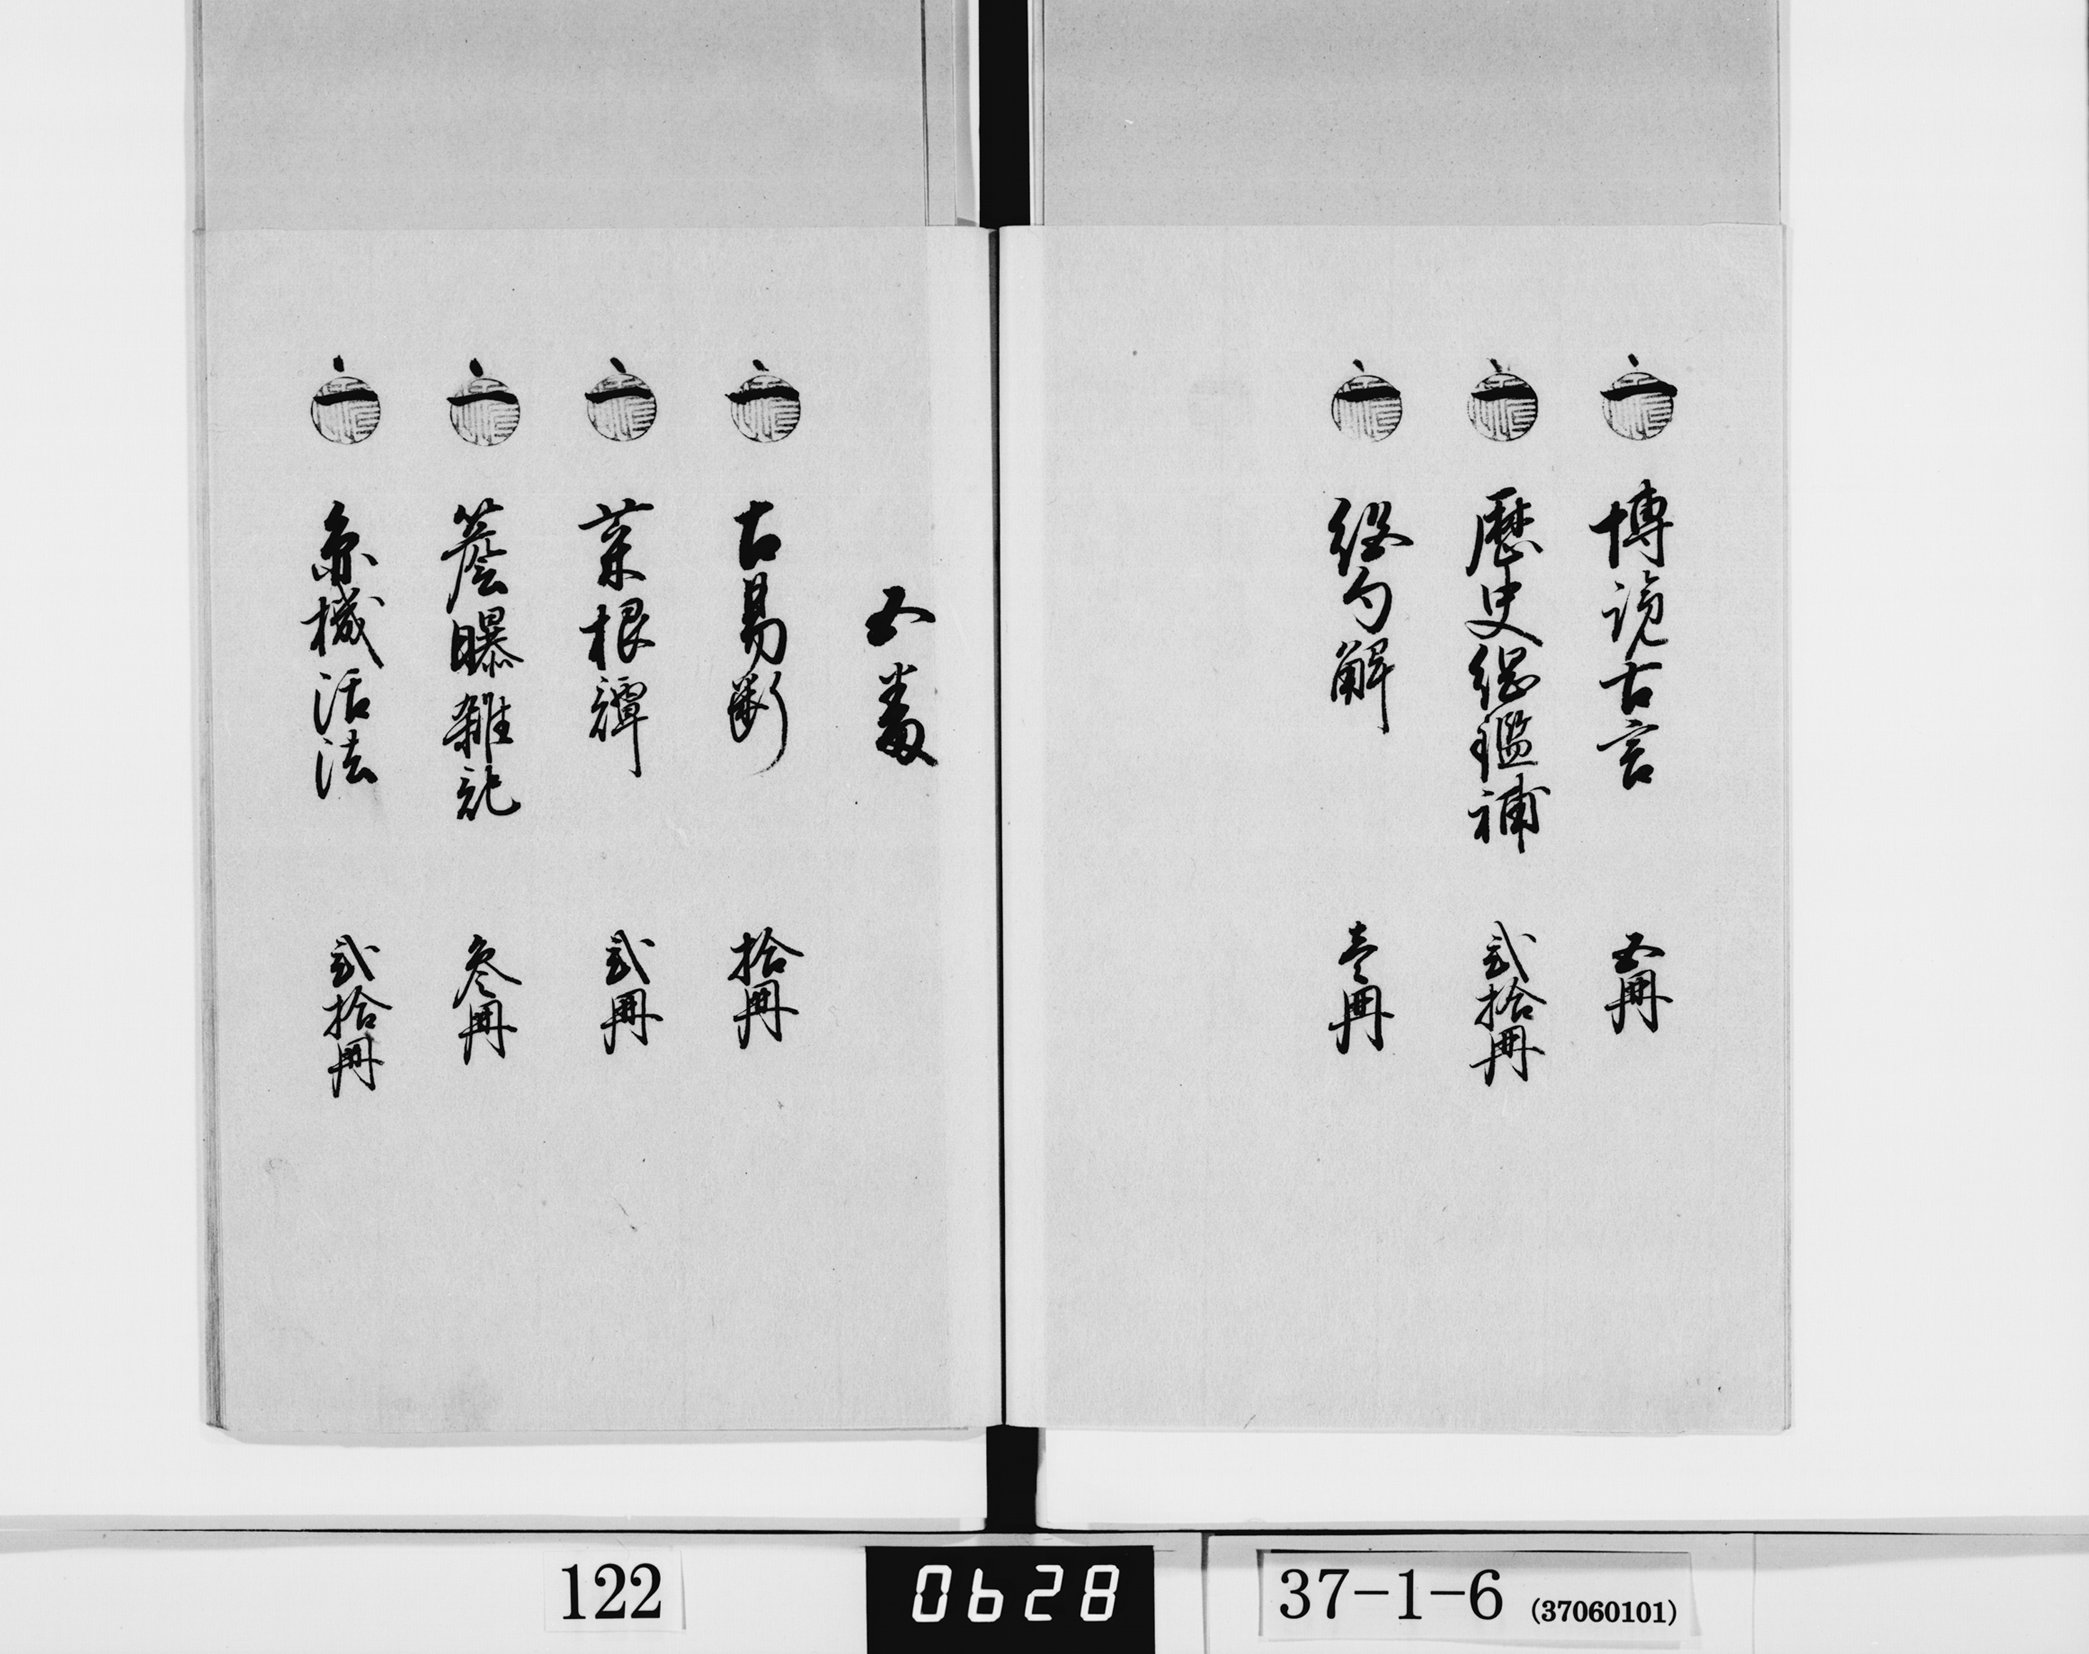 一 博読古言 五冊
一 歴史綱鑑補 弐拾冊
一 経句解 壱冊
五番
一 古易断 拾冊
一 菜根譚 弐冊
一 簷曝雑記 参冊
一 魚機活法 弐拾冊
122
0628
37-1-6 (37060101)